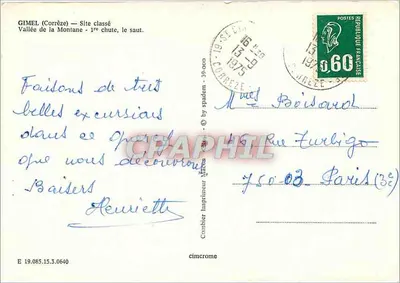 GIMEL (Corrèze) — Site classé
Vallée de la Montane - 1re chute, le saut.
Faisons de très
belles excursions
dans ce
que nous découvrons
Baisers
Henriette
E 19.085.15.3.0640
Combier Imprimeur
© by spadem - 39-000
cimcrome
CORREZE
1975
POSTES
REPUBLIQUE FRANÇAISE
0,60
Mmes Boisard
46 Rue Turbigo
75003 Paris (3e)
CPAPHIL